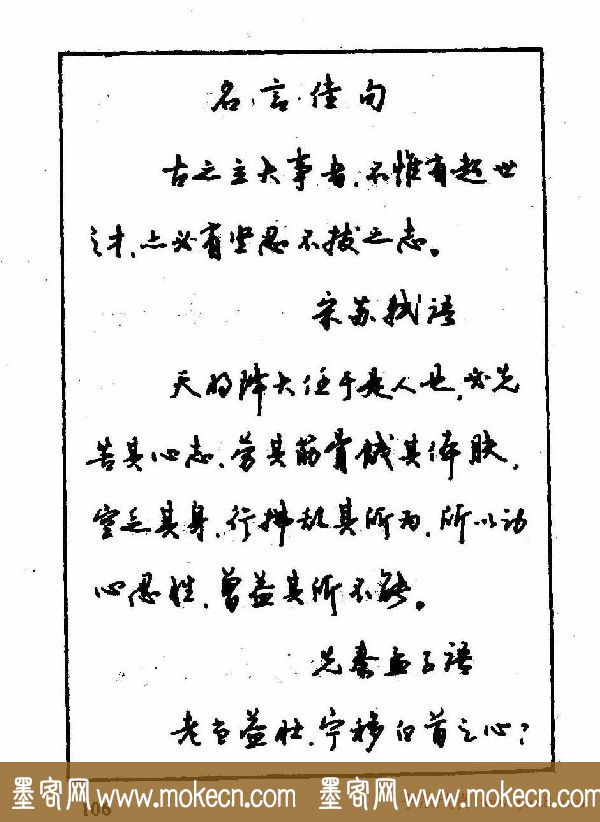 名言佳句
古之立大事者，不惟有超世
之才，亦必有坚忍不拔之志。
宋苏轼语
天将降大任于是人也，必先
苦其心志，劳其筋骨饿其体肤，
空乏其身，行拂乱其所为，所以动
心忍性，曾益其所不能。
先秦孟子语
老当益壮，宁移白首之心？
墨客网 www.mokecn.com 墨客网 www.mokecn.com
106